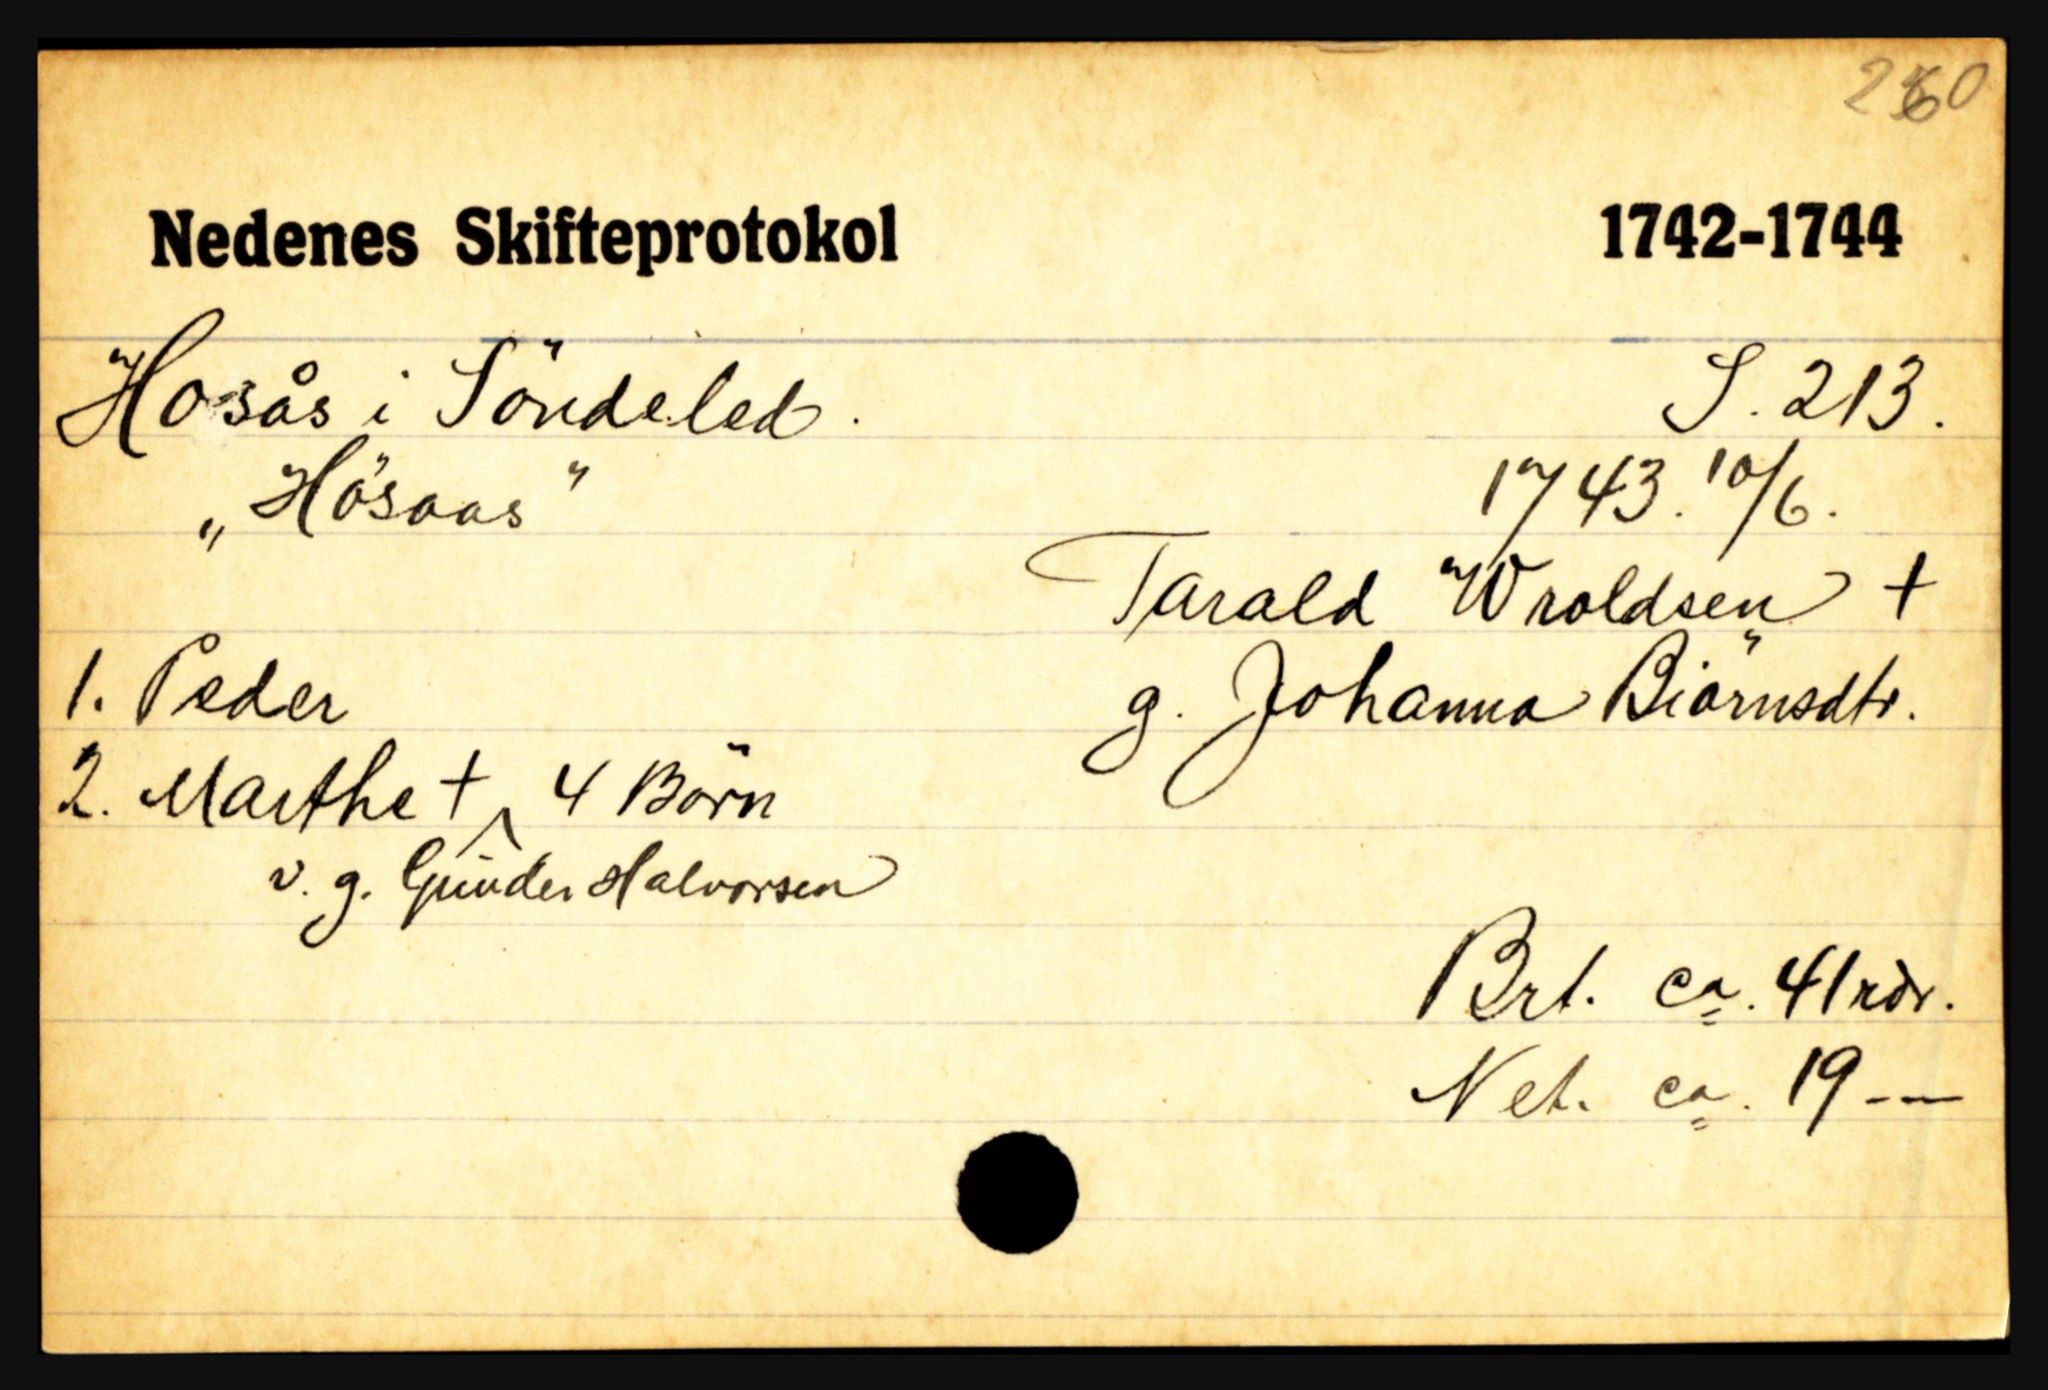 260
Nedenes Skifteprotokol 1742-1744
Hosås i Söndeled. S. 213.
„Hösaas" 1743. 10/6.
Tarald Wroldsen +
1. Peder g. Johanna Biörnsdtr.
2. Marthe + 4 Börn
v. g. Gunder Halvorsen
Brt. ca. 41 rdr.
Net. ca. 19 --